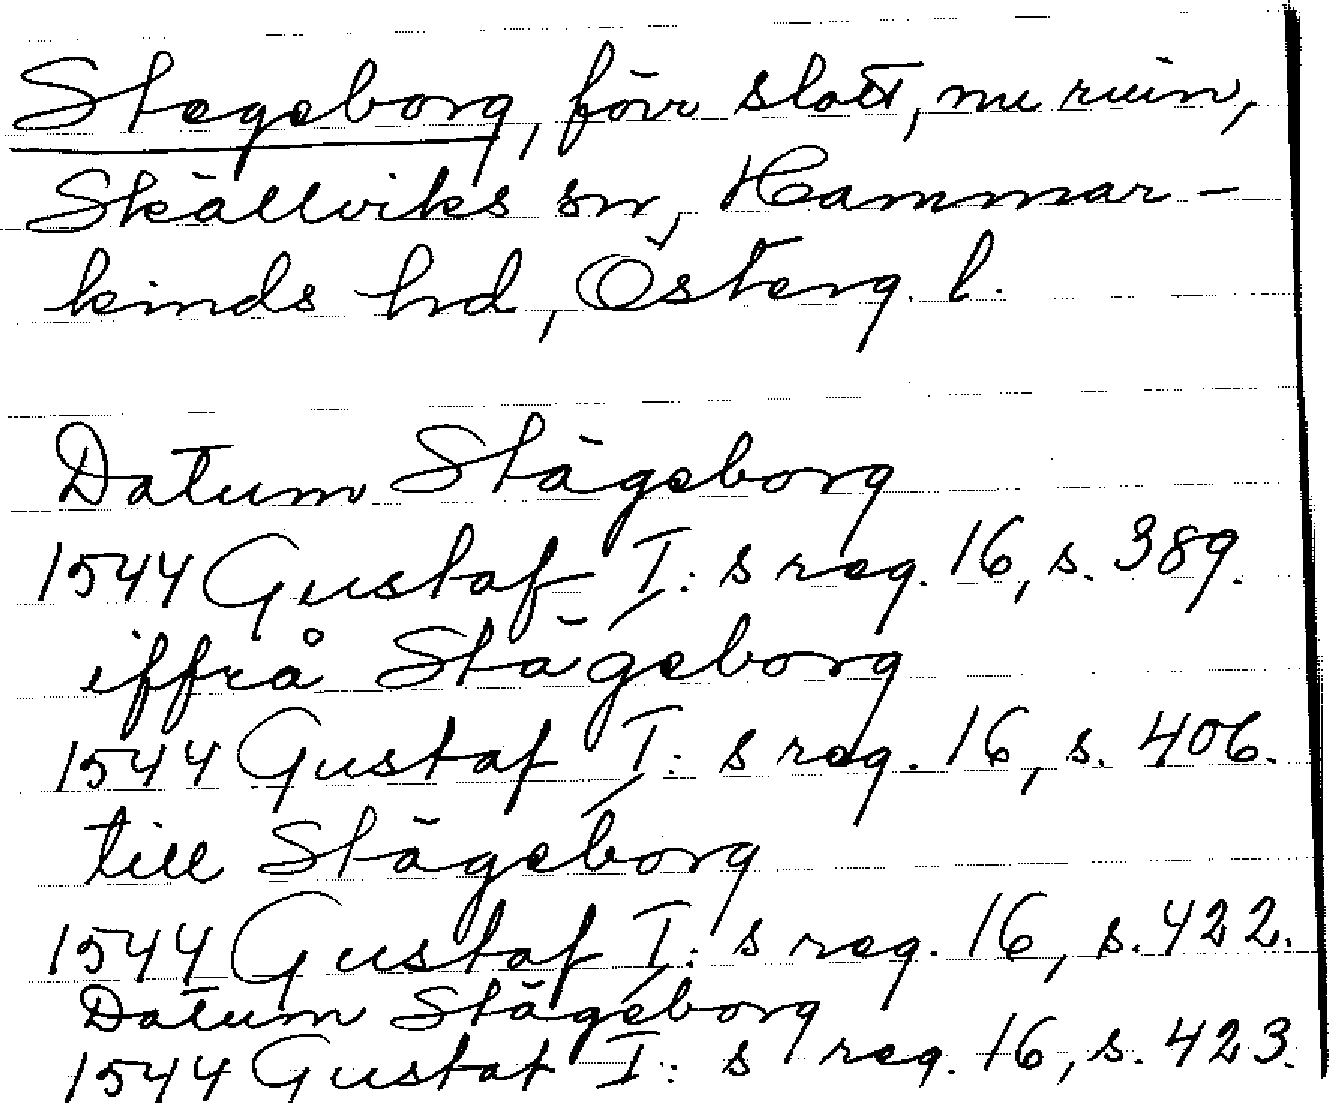 Stegeborg, förr slott, nu ruin,
Skällviks sn, Hammar-
kinds hd, Österg. l.
Datum Stägeborg
1544 Gustaf I:s reg. 16, s. 389.
iffrå Stägeborg
1544 Gustaf I:s reg. 16, s. 406.
till Stägeborg
1544 Gustaf I:s reg. 16, s. 422.
Datum Stägeborg
1544 Gustaf I:s reg. 16, s. 423.